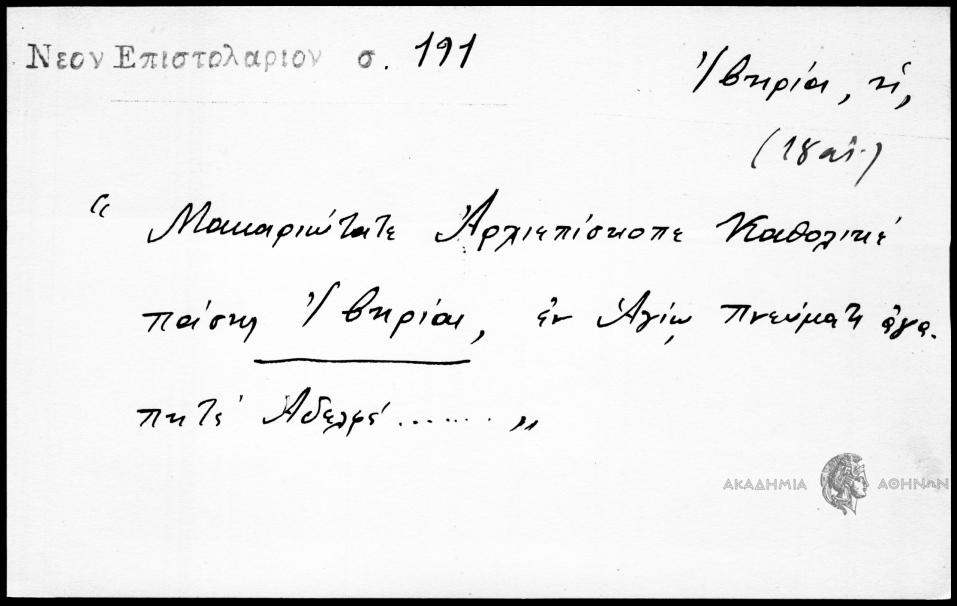 Νεον Επιστολαριον σ. 191
Ἰβηρία, ἡ,
(18 αἰ.)
“ Μακαριώτατε Ἀρχιεπίσκοπε Καθολικέ
πάσης Ἰβηρίας, ἐν Ἁγίῳ πνεύματι ἀγα-
πητέ Ἀδελφέ ....... „
ΑΚΑΔΗΜΙΑ ΑΘΗΝΩΝ